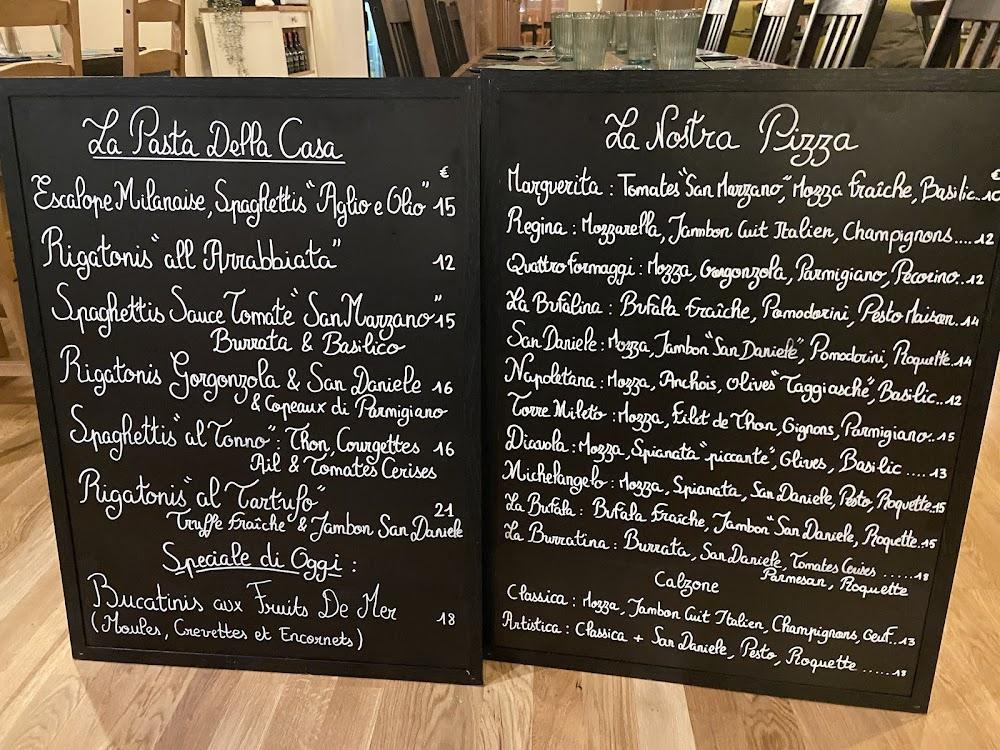 La Pasta Della Casa
€
Escalope Milanaise, Spaghettis "Aglio e Olio" 15
Rigatonis "all Arrabbiata" 12
Spaghettis Sauce Tomate "San Marzano" 15
Burrata & Basilico
Rigatonis Gorgonzola & San Daniele 16
& Copeaux di Parmigiano
Spaghettis "al Tonno" : Thon, Courgettes 16
Ail & Tomates Cerises
Rigatonis "al Tartufo" 21
Truffe Fraîche & Jambon San Daniele
Speciale di Oggi :
Bucatinis aux Fruits De Mer 18
(Moules, Crevettes et Encornets)
La Nostra Pizza
€
Marguerita : Tomates "San Marzano", Mozza Fraîche, Basilic.. 10
Regina : Mozzarella, Jambon Cuit Italien, Champignons.... 12
Quattro Formaggi : Mozza, Gorgonzola, Parmigiano, Pecorino.. 12
La Bufalina : Bufala Fraîche, Pomodorini, Pesto Maison.. 14
San Daniele : Mozza, Jambon "San Daniele", Pomodorini, Roquette.. 14
Napoletana : Mozza, Anchois, Olives "Taggiasche", Basilic.. 12
Torre Mileto : Mozza, Filet de Thon, Oignons, Parmigiano.. 15
Diavola : Mozza, Spianata "piccante", Olives, Basilic .... 13
Michelangelo : Mozza, Spianata, San Daniele, Pesto, Roquette. 15
La Bufala : Bufala Fraîche, Jambon "San Daniele, Roquette.. 15
La Burratina : Burrata, San Daniele, Tomates Cerises ...... 18
Parmesan, Roquette
Calzone
Classica : Mozza, Jambon Cuit Italien, Champignons, Oeuf.. 13
Artistica : Classica + San Daniele, Pesto, Roquette ...... 18